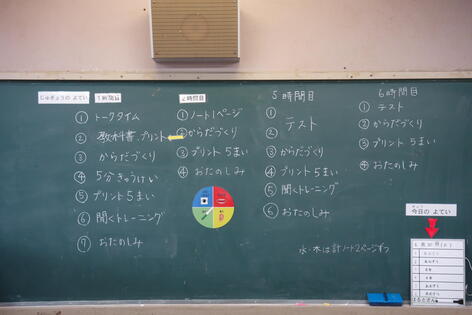 じゅぎょうの よてい
1時間目
① トークタイム
② 教科書、プリント
③ からだづくり
④ 5分きゅうけい
⑤ プリント 5まい
⑥ 聞くトレーニング
⑦ おたのしみ
2時間目
① ノート1ページ
② からだづくり
③ プリント 5まい
④ おたのしみ
5時間目
①
② テスト
③ からだづくり
④ プリント 5まい
⑤ 聞くトレーニング
⑥ おたのしみ
6時間目
① テスト
② からだづくり
③ プリント 5まい
④ おたのしみ
水・木は計ノート2ページずつ
今日の よてい